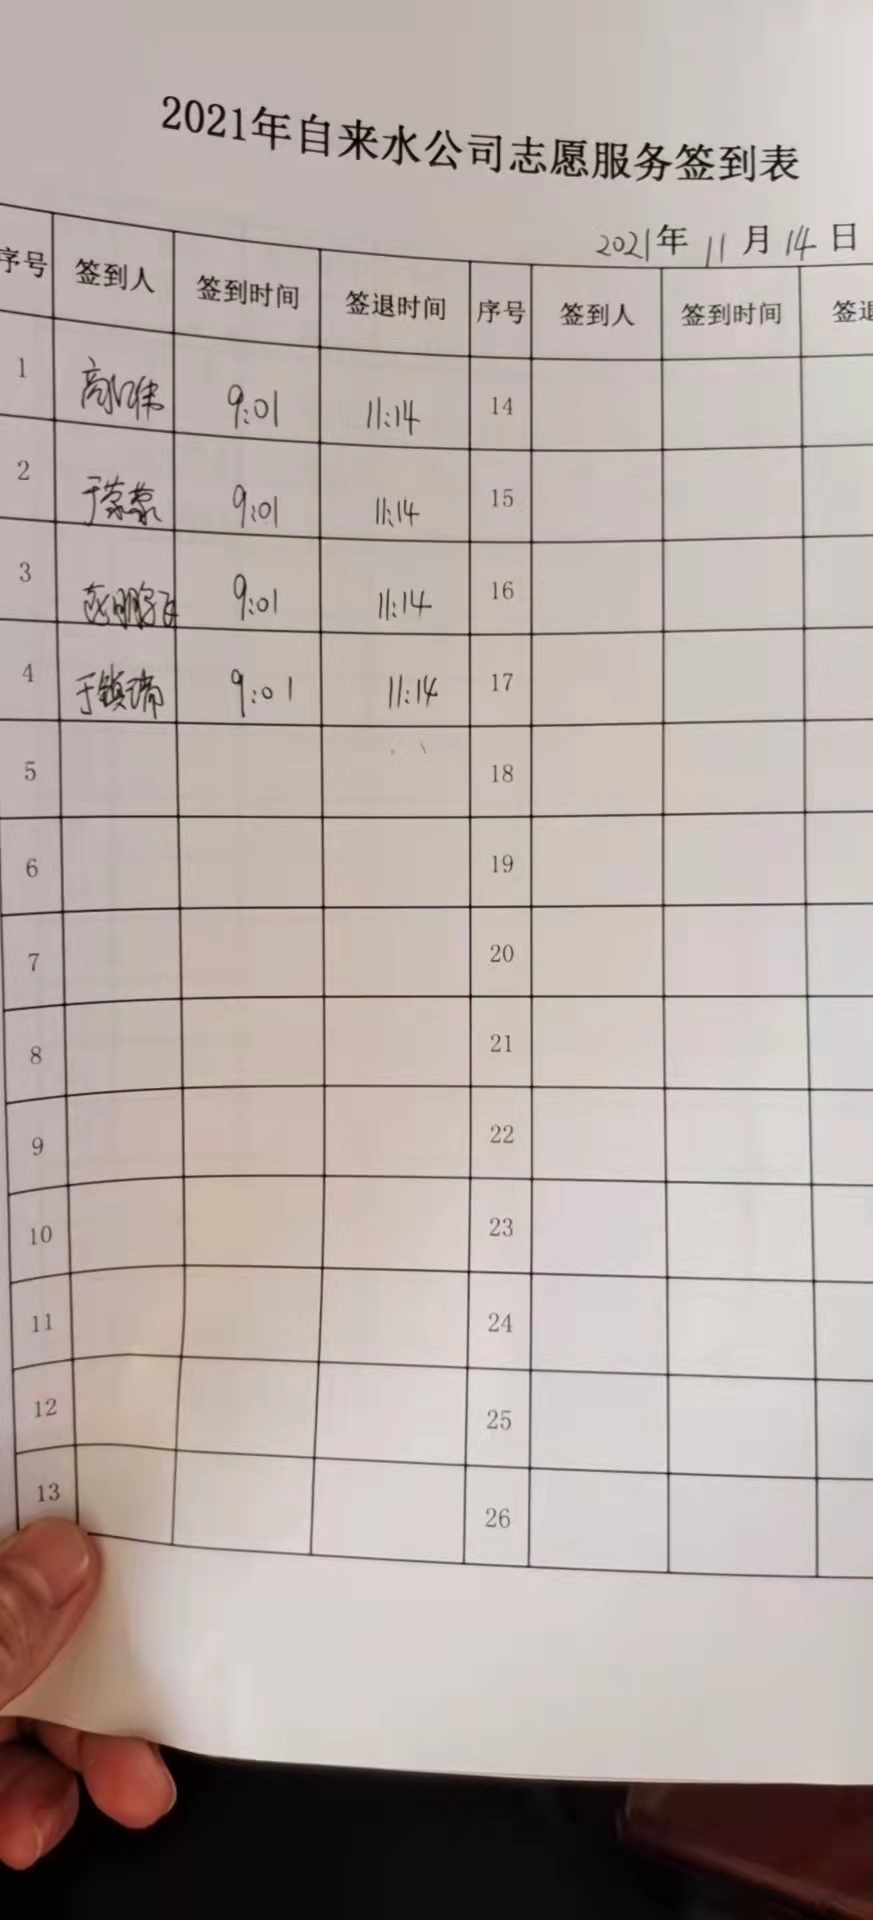 2021年自来水公司志愿服务签到表
2021年 11 月 14 日
序号 签到人 签到时间 签退时间 序号 签到人 签到时间 签退
1 9:01 11:14 14
2 于蒙蒙 9:01 11:14 15
3 9:01 11:14 16
4 于镇瑞 9:01 11:14 17
5 18
6 19
7 20
8 21
9 22
10 23
11 24
12 25
13 26